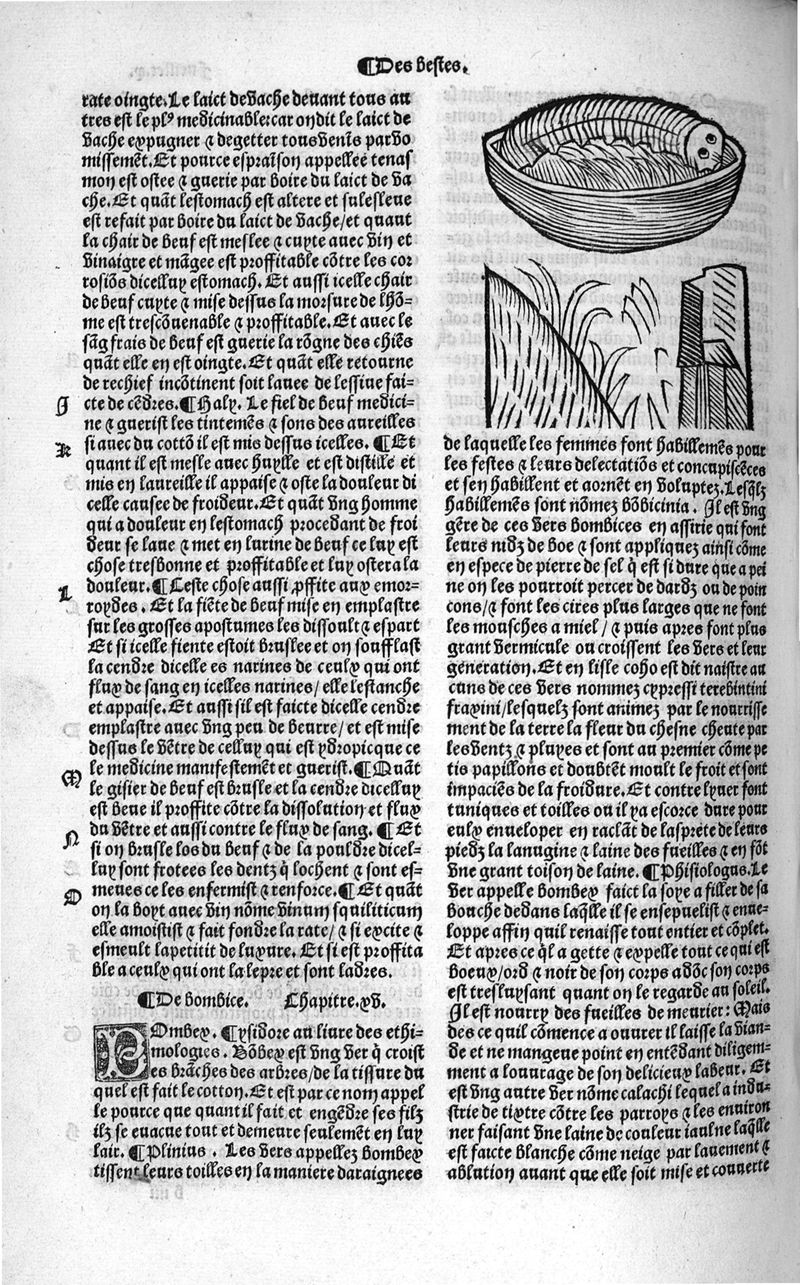 ¶Des bestes.
rate oingte. Le laict de vache devant tous au
tres est le pl⁹ medicinable: car on dit le laict de
vache expugner ⁊ degetter tous venīs par vo
missemēt. Et pource espraīson appellee tenas
mon est ostee ⁊ guerie par boire du laict de va
che. Et quāt lestomach est altere et sulesleue
est refait par boire du laict de vache/et quant
la chair de beuf est meslee ⁊ cuyte avec vin et
vinaigre et māgee est proffitable cōtre les cor
rosiōs dicelluy estomach. Et aussi icelle chair
de beuf cuyte ⁊ mise dessus la morsure de lhō-
me est trescōuenable ⁊ proffitable. Et auec le
sāg frais de beuf est guerie la rōgne des chiēs
quāt elle en est oingte. Et quāt elle retourne
de rechief incōtinent soit lauee de lessiue fai-
J
cte de cēdres. ¶Haly. Le fiel de beuf medici-
ne ⁊ guerist les tintemēs ⁊ sons des aureilles
K
si auec du cottō il est mis dessus icelles. ¶Et
quant il est mesle auec huylle et est distille et
mis en laureille il appaise ⁊ oste la douleur di
celle causee de froideur. Et quāt vng homme
qui a douleur en lestomach procedant de froi
deur se laue ⁊ met en lurine de beuf ce luy est
chose tresbonne et proffitable et luy ostera la
L
douleur. ¶Ceste chose aussi ꝓffite aux emor-
roydes. Et la fiēte de beuf mise en emplastre
sur les grosses apostumes les dissoult ⁊ espart
Et si icelle fiente estoit bruslee et on soufflast
la cendre dicelle es narines de ceulx qui ont
flux de sang en icelles narines/ elle lestanche
et appaise. Et aussi sil est faicte dicelle cendre
emplastre auec vng peu de beurre/ et est mise
dessus le vētre de celluy qui est ydropicque ce
M
le medicine manifestemēt et guerist. ¶Quāt
le gisier de beuf est brusle et la cendre dicelluy
est beue il proffite cōtre la dissolution et flux
N
du vētre et aussi contre le flux de sang. ¶Et
si on brusle los du beuf ⁊ de la pouldre dicel-
luy sont frotees les dentz q̄ lochent ⁊ sont es-
O
meues ce les enfermist ⁊ renforce. ¶Et quāt
on la boyt auec vin nōme vinum squiliticum
elle amoistist ⁊ fait fondre la rate/ ⁊ si excite ⁊
esmeult lapetitit de luxure. Et si est proffita
ble a ceulx qui ont la lepre et sont ladres.
¶De bombice. Chapitre.xv.
BOmbex. ¶Ysidore au liure des ethi-
mologies. Bōbex est vng ver q̄ croist
es brāches des arbres/de la tissure du
quel est fait le cotton. Et est par ce nom appel
le pource que quant il fait et engēdre ses filz
ilz se euacue tout et demeure seulemēt en luy
lair. ¶Plinius. Les vers appellez bombex
tissent leurs toilles en la maniere daraignees
de laquelle les femmes font habillemēs pour
les festes ⁊ leurs delectatiōs et concupiscēces
et sen habillent et aornēt en voluptez. Lesq̄lz
habillemēs sont nōmez bōbicinia. Il est vng
gēre de ces vers bombices en assirie qui font
leurs nidz de boe ⁊ sont appliquez ainsi cōme
en espece de pierre de sel q̄ est si dure que a pei
ne on les pourroit percer de dardz ou de poin
cons/⁊ font les cires plus larges que ne font
les mousches a miel/ ⁊ puis apres font plus
grant vermicule ou croissent les vers et leur
generation. Et en lisle coho est dit naistre au
cuns de ces vers nommez cypressi terebintini
fraxini/lesquelz sont animez par le nourrisse
ment de la terre la fleur du chesne cheute par
les ventz ⁊ pluyes et sont au premier cōme pe
tis papillons et doubtēt moult le froit et sont
impaciēs de la froidure. Et contre lyuer font
tuniques et toilles ou il ya escorce dure pour
eulx enueloper en raclāt de lasprete de leurs
piedz la lanugine ⁊ laine des fueilles ⁊ en fōt
vne grant toison de laine. ¶Phisiologus. Le
ver appelle bombex faict la soye a filler de sa
bouche dedans laq̄lle il se ensepuelist ⁊ enue-
loppe affin quil renaisse tout entier et cōplet.
Et apres ce q̄l a gette ⁊ expelle tout ce qui est
boeux/ord ⁊ noir de son corps adōc son corps
est tresluysant quant on le regarde au soleil.
Il est nourry des fueilles de meurier: Mais
des ce quil cōmence a ouurer il laisse la vian-
de et ne mangeue point en entēdant diligem-
ment a louurage de son delicieux labeur. Et
est vng autre ver nōme calachi lequel a indu-
strie de tixtre cōtre les parroys ⁊ les environ
ner faisant vne laine de couleur iaulne laq̄lle
est faicte blanche cōme neige par lauement ⁊
ablution auant que elle soit mise et conuerte